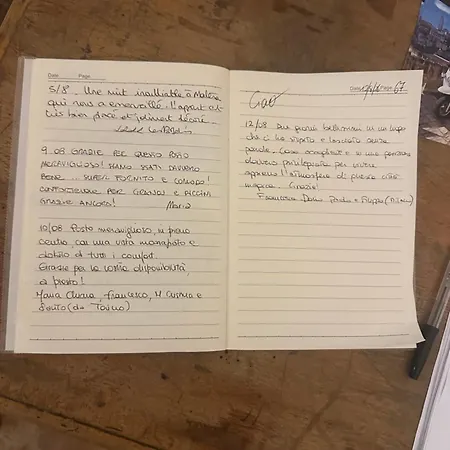 Date: Page:
5/8. Une nuit inoubliable à Matera
qui nous a émerveillé. l'appart est
très bien placé et joliment décoré.
9.08 GRAZIE PER QUESTO POSTO
MERAVIGLIOSO! SIAMO STATI DAVVERO
BENE... SUPER FORNITO E COMODO!
PER GRANDI E PICCINI
GRAZIE ANCORA! Maria
10/08 Posto meraviglioso, in pieno
centro, con una vista mozzafiato e
dotato di tutti i comfort.
Grazie per la vostra disponibilità,
a presto!
Maria Chiara, Francesco, M. e
(da Torino)
Date: Page: 67
Ciao
12/08 Due giorni bellissimi in un luogo
che ci ha stupito e lasciato senza
parole, casa accogliente e in una posizione
davvero privilegiata per vivere
appieno l'atmosfera di questa città
magica. Grazie!
Francesca, e Filippo